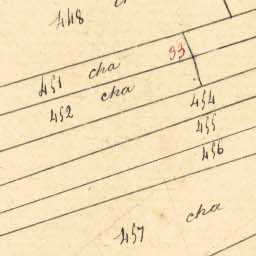 448
451 cha 93
452 cha 454
455
456
457 cha